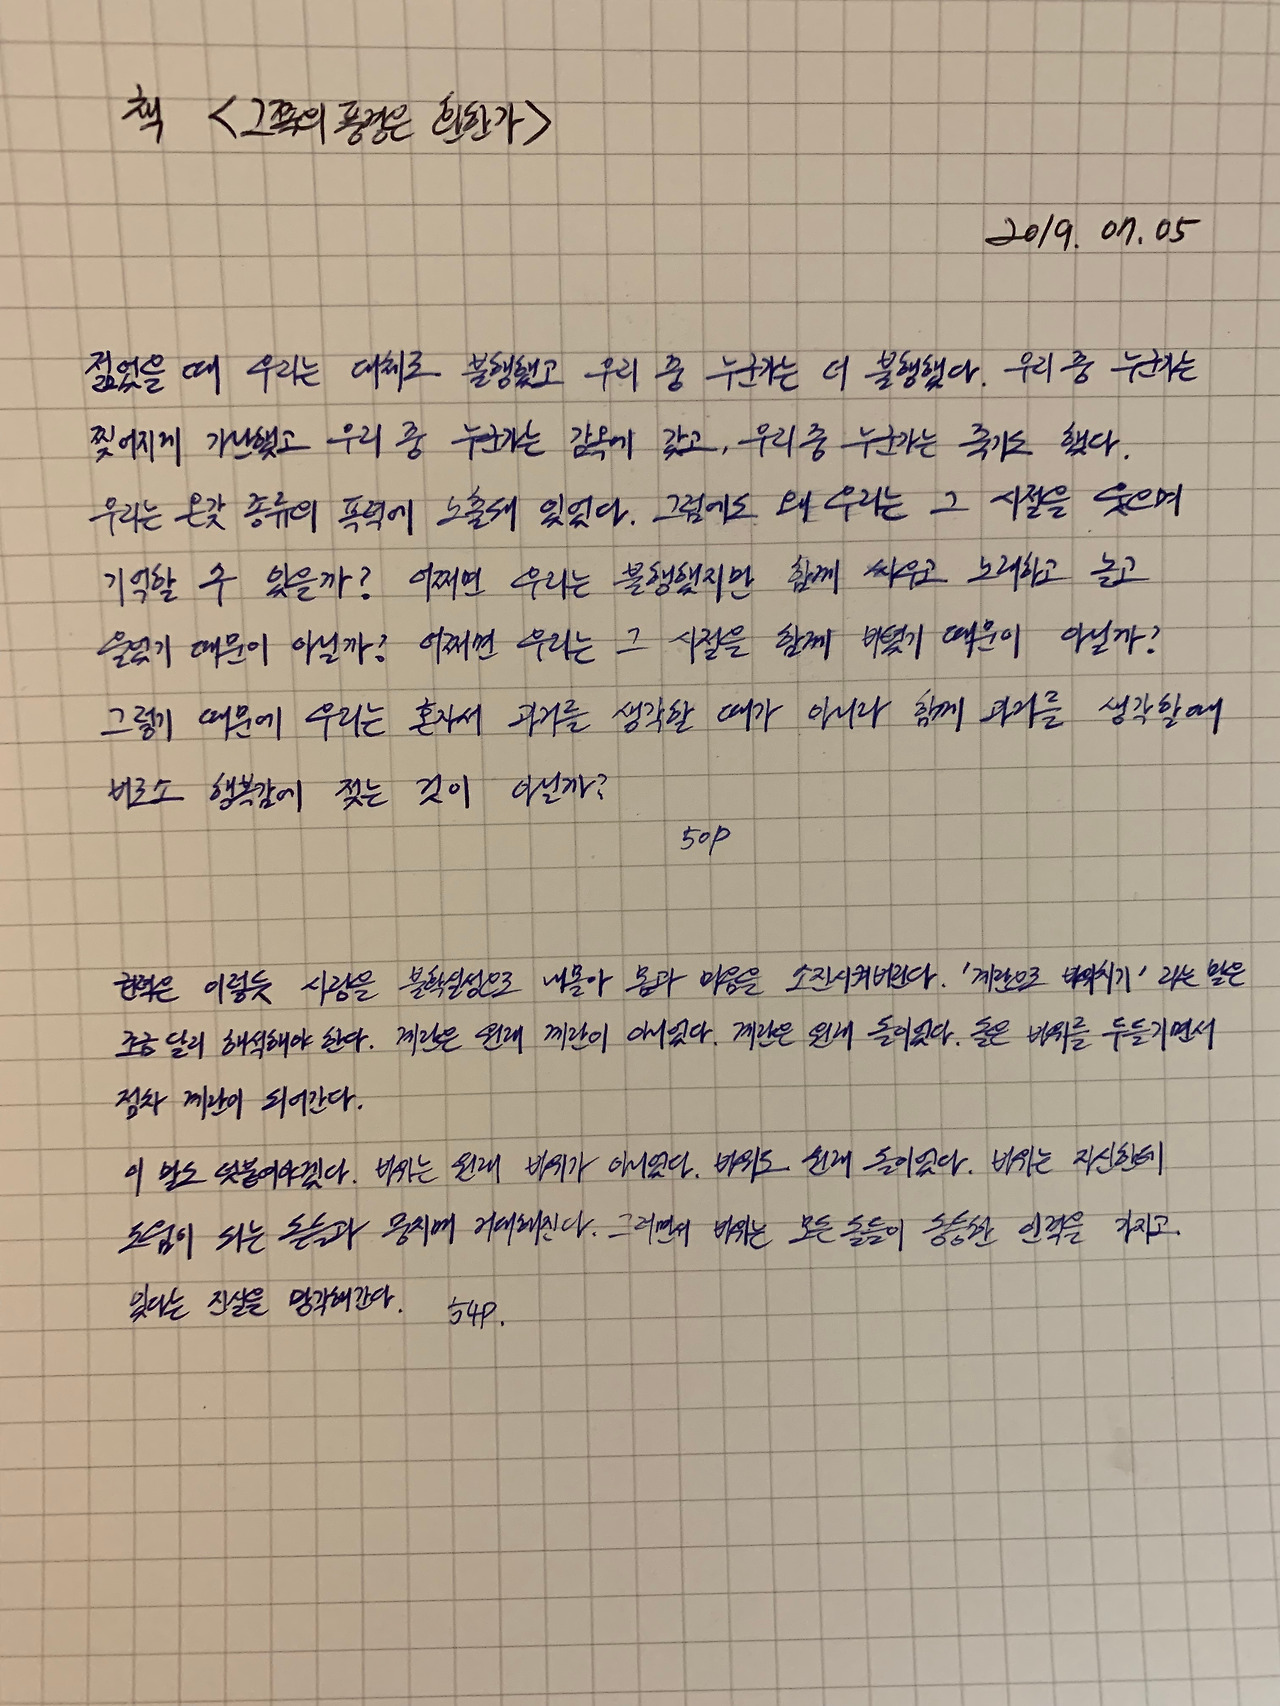 책 <그쪽의 풍경은 환한가>
2019. 07. 05
젊었을 때 우리는 대체로 불행했고 우리 중 누군가는 더 불행했다. 우리 중 누군가는
찢어지게 가난했고 우리 중 누군가는 감옥에 갔고, 우리 중 누군가는 죽기도 했다.
우리는 온갖 종류의 폭력에 노출돼 있었다. 그럼에도 왜 우리는 그 시절을 웃으며
기억할 수 있을까? 어쩌면 우리는 불행했지만 함께 싸우고 노래하고 놀고
울었기 때문이 아닐까? 어쩌면 우리는 그 시절을 함께 버텼기 때문이 아닐까?
그렇기 때문에 우리는 혼자서 과거를 생각할 때가 아니라 함께 과거를 생각할때
비로소 행복감에 젖는 것이 아닐까?
50p
권력은 이렇듯 사람을 불확실성으로 내몰아 몸과 마음을 소진시켜버린다. '계란으로 바위치기' 라는 말은
조금 달리 해석해야 한다. 계란은 원래 계란이 아니었다. 계란은 원래 돌이었다. 돌은 바위를 두들기면서
점차 계란이 되어간다.
이 말도 덧붙여야겠다. 바위는 원래 바위가 아니었다. 바위도 원래 돌이었다. 바위는 자신한테
도움이 되는 돌들과 뭉치며 거대해진다. 그러면서 바위는 모든 돌들이 동등한 인력을 가지고
있다는 진실을 망각해간다. 54p.